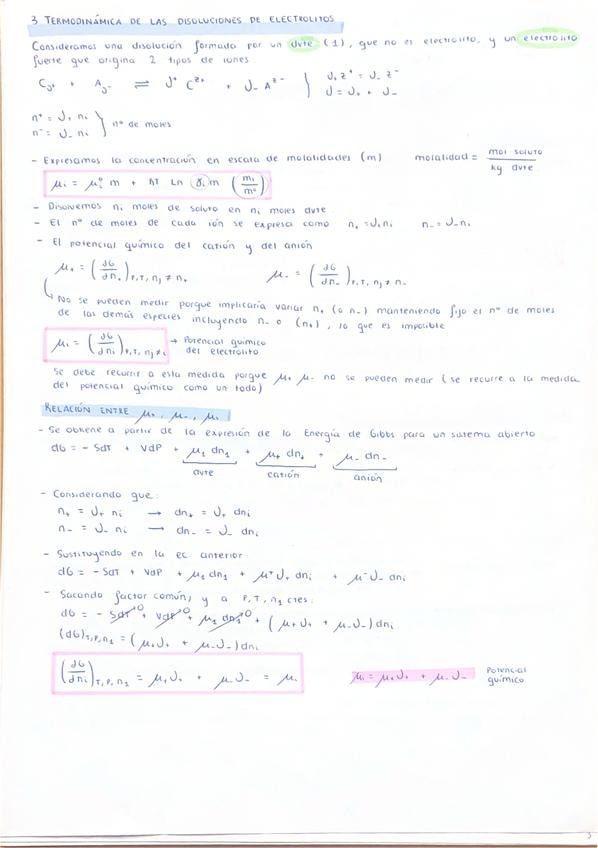 3 TERMODINÁMICA DE LAS DISOLUCIONES DE ELECTROLITOS
Consideramos una disolución formada por un dvte (1), que no es electrolito, y un electrolito
fuerte que origina 2 tipos de iones
Cν+ + Aν- ⇌ ν+ C^Z+ + ν- A^Z- } ν+ Z+ = ν- Z-
ν = ν+ + ν-
n+ = ν+ ni
n- = ν- ni } nº de moles
- Expresamos la concentración en escala de molalidades (m) molalidad = mol soluto / kg dvte
μi = μi° m + RT Ln γi m (mi/m°)
- Disolvemos ni moles de soluto en n1 moles dvte
- El nº de moles de cada ión se expresa como n+ = ν+ ni n- = ν- ni
- El potencial químico del catión y del anión
μ+ = (∂G/∂n+) P,T, nj ≠ n+ μ- = (∂G/∂n-) P,T, nj ≠ n-
No se pueden medir porque implicaría variar n+ (o n-) manteniendo fijo el nº de moles
de las demás especies incluyendo n- o (n+), lo que es imposible
μi = (∂G/∂ni) P,T, nj ≠ i → Potencial químico del electrolito
Se debe recurrir a esta medida porque μ+ μ- no se pueden medir (se recurre a la medida
del potencial químico como un todo)
RELACIÓN ENTRE μ+, μ-, μi
- Se obtiene a partir de la expresión de la Energía de Gibbs para un sistema abierto
dG = - SdT + VdP + μ1 dn1 + μ+ dn+ + μ- dn-
dvte catión anión
- Considerando que:
n+ = ν+ ni → dn+ = ν+ dni
n- = ν- ni → dn- = ν- dni
- Sustituyendo en la ec anterior:
dG = - SdT + VdP + μ1 dn1 + μ+ ν+ dni + μ- ν- dni
- Sacando factor común, y a P, T, n1 ctes:
dG = - SdT→0 + VdP→0 + μ1 dn1→0 + (μ+ν+ + μ-ν-) dni
(dG)T,P,n1 = (μ+ν+ + μ-ν-) dni
(∂G/∂ni) T,P,n1 = μ+ν+ + μ-ν- = μi μi = μ+ν+ + μ-ν- Potencial químico
3